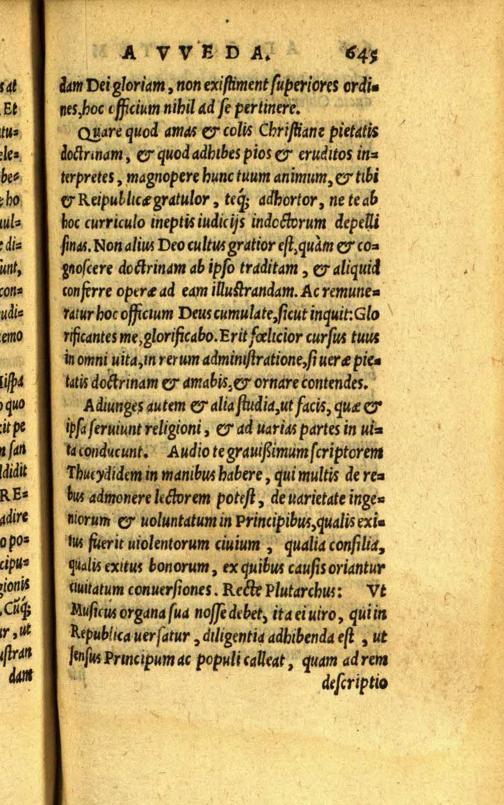 A V V E D A. 645
dam Dei gloriam, non existiment superiores ordi=
nes, hoc officium nihil ad se pertinere.
Quare quod amas & colis Christiane pietatis
doctrinam, & quod adhibes pios & eruditos in=
terpretes, magnopere hunc tuum animum, & tibi
& Reipublicæ gratulor, teq; adhortor, ne te ab
hoc curriculo ineptis iudicijs indoctorum depelli
sinas. Non alius Deo cultus gratior est, quàm & co=
gnoscere doctrinam ab ipso traditam, & aliquid
conferre operæ ad eam illustrandam. Ac remune=
ratur hoc officium Deus cumulate, sicut inquit: Glo
rificantes me, glorificabo. Erit fœlicior cursus tuus
in omni uita, in rerum administratione, si ueræ pie=
tatis doctrinam & amabis, & ornare contendes.
Adiunges autem & alia studia, ut facis, quæ &
ipsa seruiunt religioni, & ad uarias partes in ui=
ta conducunt. Audio te grauißimum scriptorem
Thucydidem in manibus habere, qui multis de re=
bus admonere lectorem potest, de uarietate inge=
niorum & uoluntatum in Principibus, qualis exi=
tus fuerit uiolentorum ciuium, qualia consilia,
qualis exitus bonorum, ex quibus causis oriantur
ciuitatum conuersiones. Recte Plutarchus: Vt
Musicus organa sua nosse debet, ita ei uiro, qui in
Republica uersatur, diligentia adhibenda est, ut
sensus Principum ac populi calleat, quam ad rem
descriptio